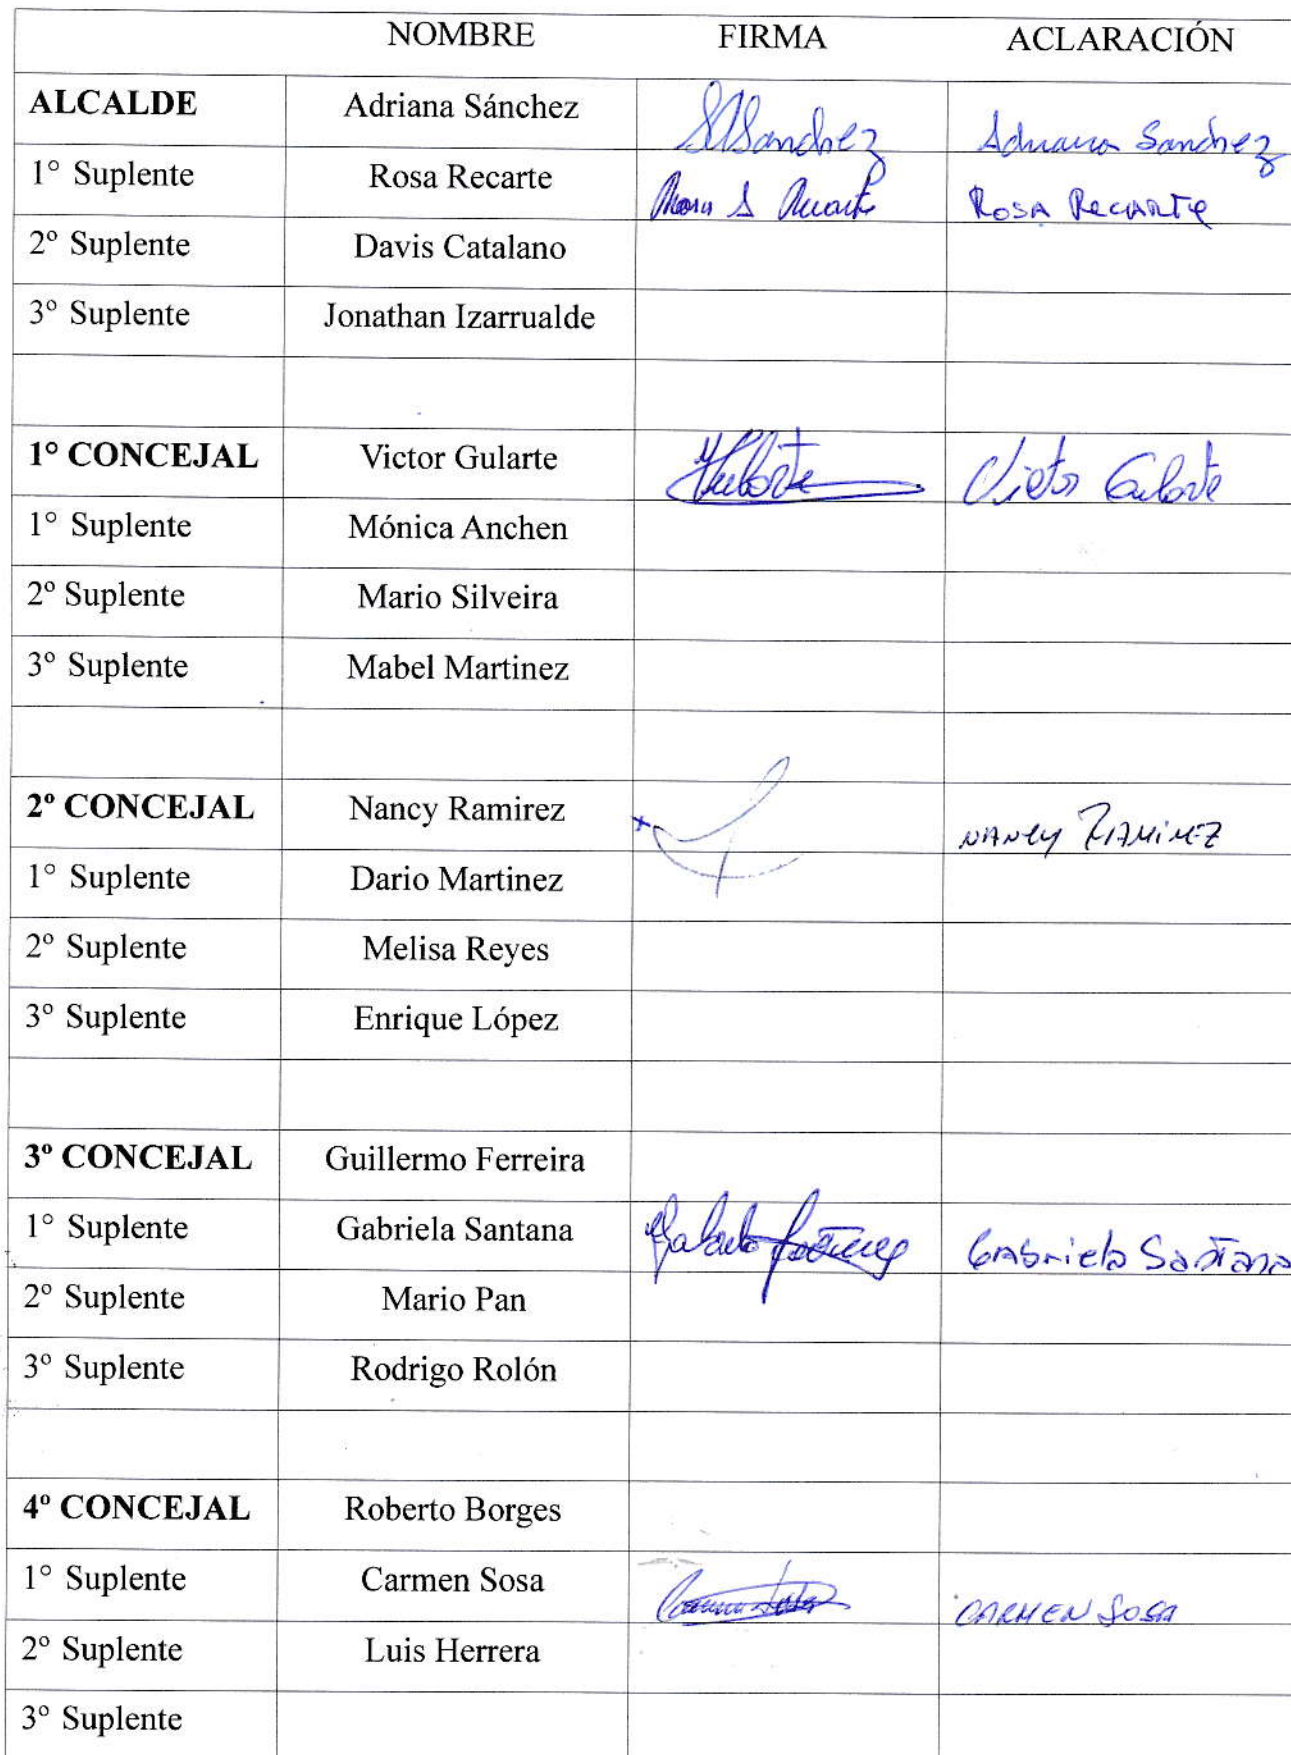 NOMBRE FIRMA ACLARACIÓN
ALCALDE Adriana Sánchez Sanchez Adriana Sanchez
1° Suplente Rosa Recarte Rosa Recarte
2º Suplente Davis Catalano
3º Suplente Jonathan Izarrualde
1º CONCEJAL Victor Gularte Victor Gularte
1° Suplente Mónica Anchen
2º Suplente Mario Silveira
3º Suplente Mabel Martinez
2º CONCEJAL Nancy Ramirez NANCY RAMIREZ
1° Suplente Dario Martinez
2º Suplente Melisa Reyes
3º Suplente Enrique López
3º CONCEJAL Guillermo Ferreira
1° Suplente Gabriela Santana GABriela Santana
2º Suplente Mario Pan
3º Suplente Rodrigo Rolón
4º CONCEJAL Roberto Borges
1° Suplente Carmen Sosa CARMEN SOSA
2º Suplente Luis Herrera
3º Suplente